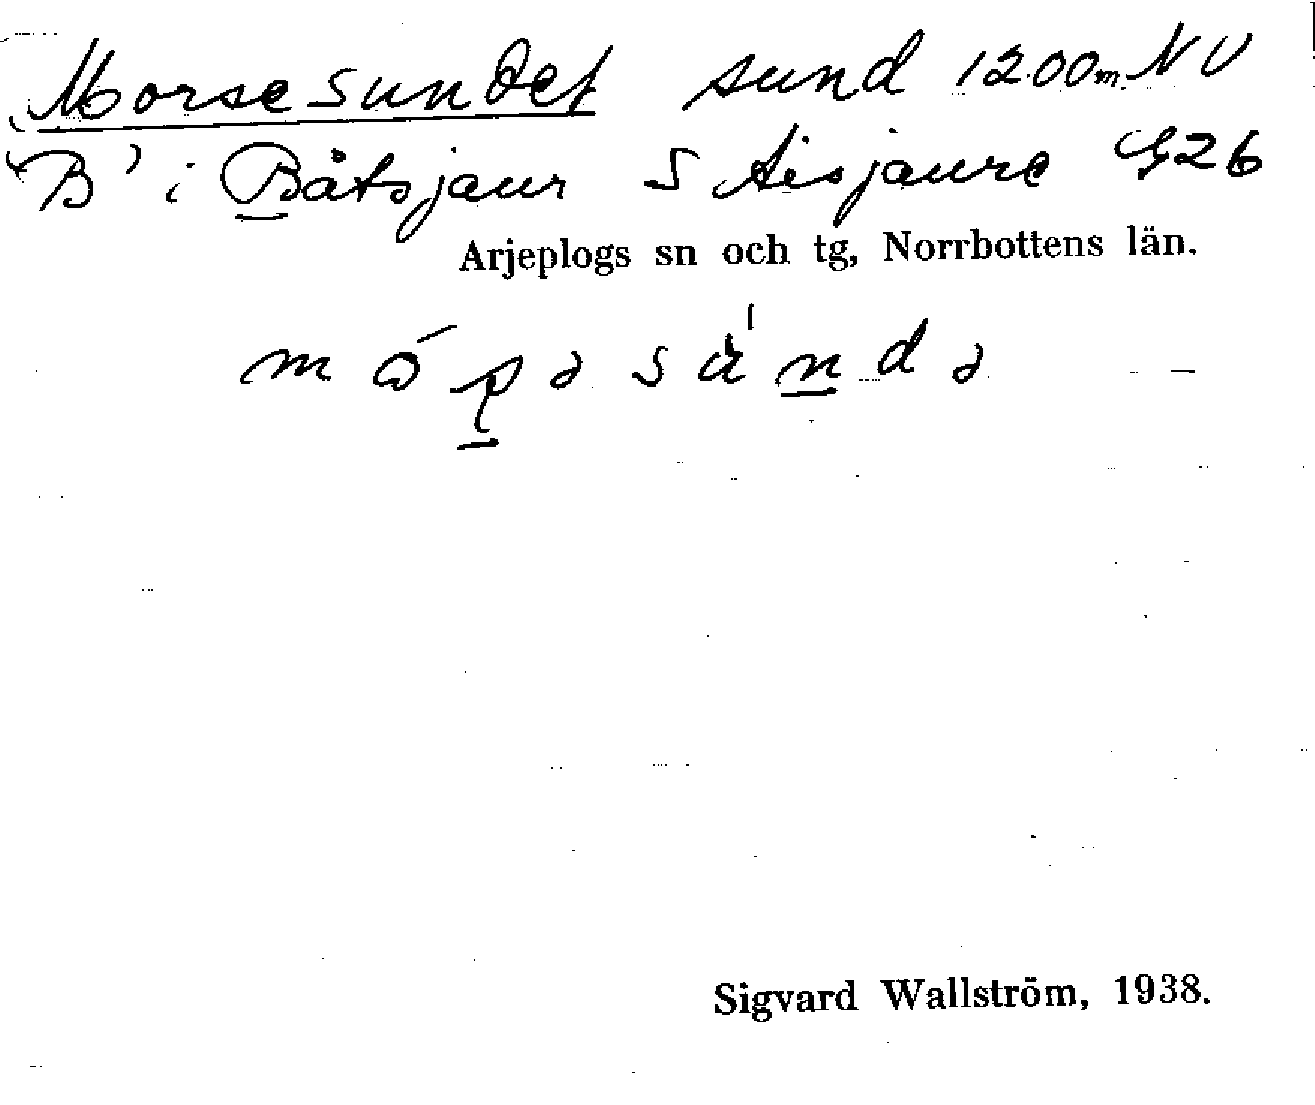 Morsesundet sund 1200 m NV
"B" i Båtsjaur S Aisjaure G26
Arjeplogs sn och tg, Norrbottens län.
Sigvard Wallström, 1938.